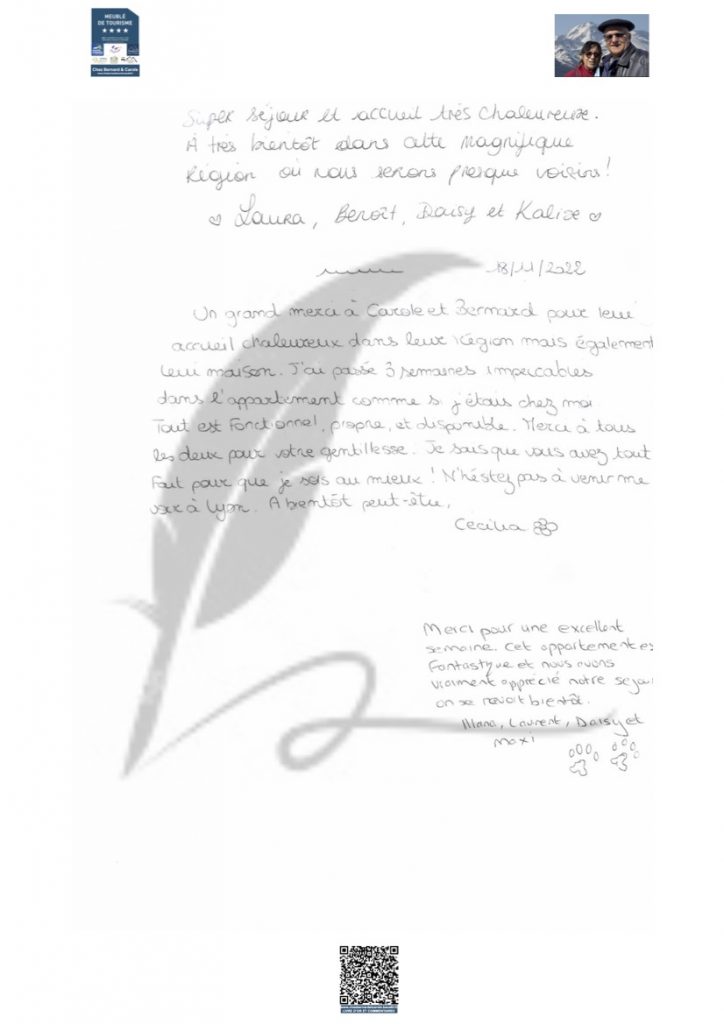 MEUBLÉ
DE TOURISME
★★★★
Chez Bernard & Carole
Super séjour et accueil très chaleureuse.
À très bientôt dans cette magnifique
Région où nous serons presque voisins !
♡ Laura, Benoît, Daisy et Kalixe ♡
18/11/2022
Un grand merci à Carole et Bernard pour leur
accueil chaleureux dans leur Région mais également
leur maison. J'ai passé 3 semaines impecables
dans l'appartement comme si j'étais chez moi.
Tout est Fonctionnel, propre, et disponible. Merci à tous
les deux pour votre gentillesse. Je sais que vous avez tout
Fait pour que je sois au mieux ! N'héstez pas à venir me
voir à Lyon. A bientôt peut-être,
Cécilia
Merci pour une excellent
semaine. Cet appartement es
Fantastique et nous avons
vraiment apprécié notre sejour
on se revoit bientôt.
Laurent, Daisy et
Maxi
LIVRE D'OR ET COMMENTAIRES